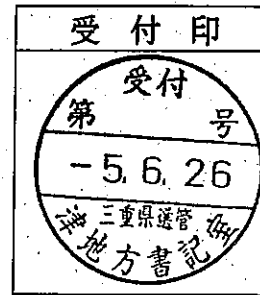 受付印
受付
第 号
-5.6.26
三重県選管
津地方書記室